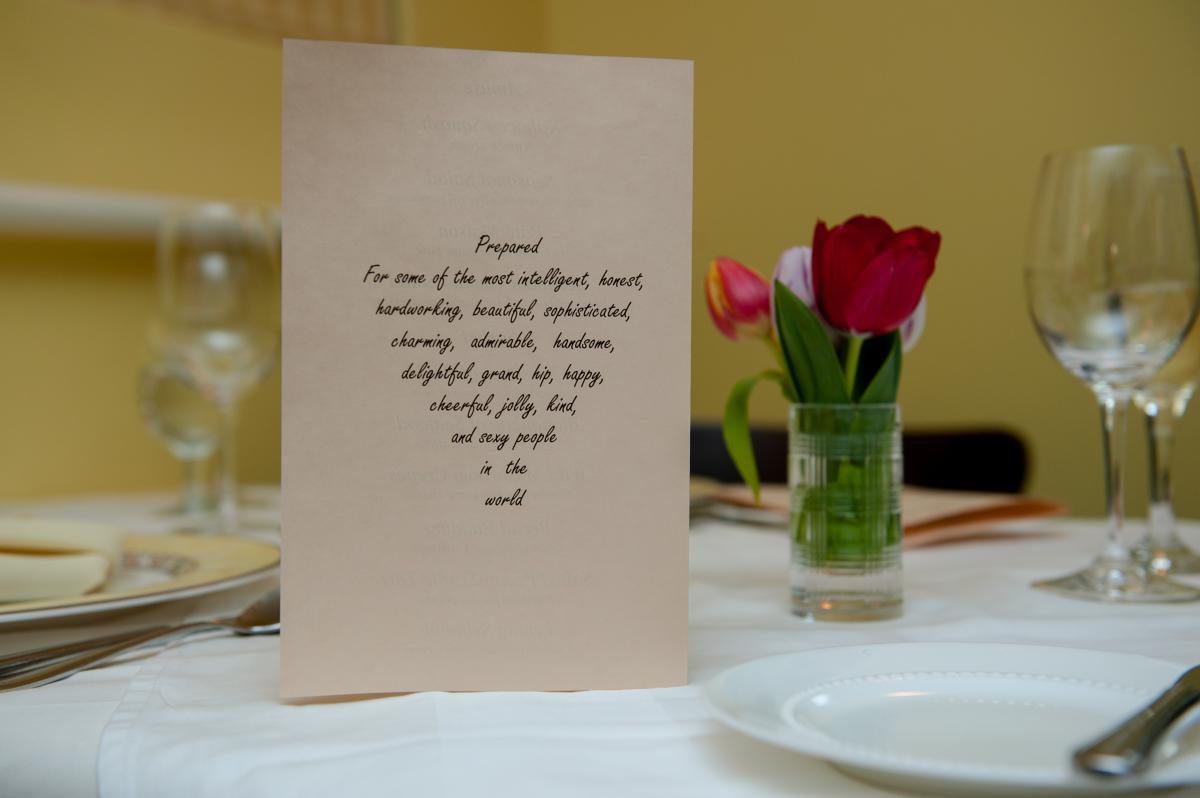 Prepared
For some of the most intelligent, honest,
hardworking, beautiful, sophisticated,
charming, admirable, handsome,
delightful, grand, hip, happy,
cheerful, jolly, kind,
and sexy people
in the
world